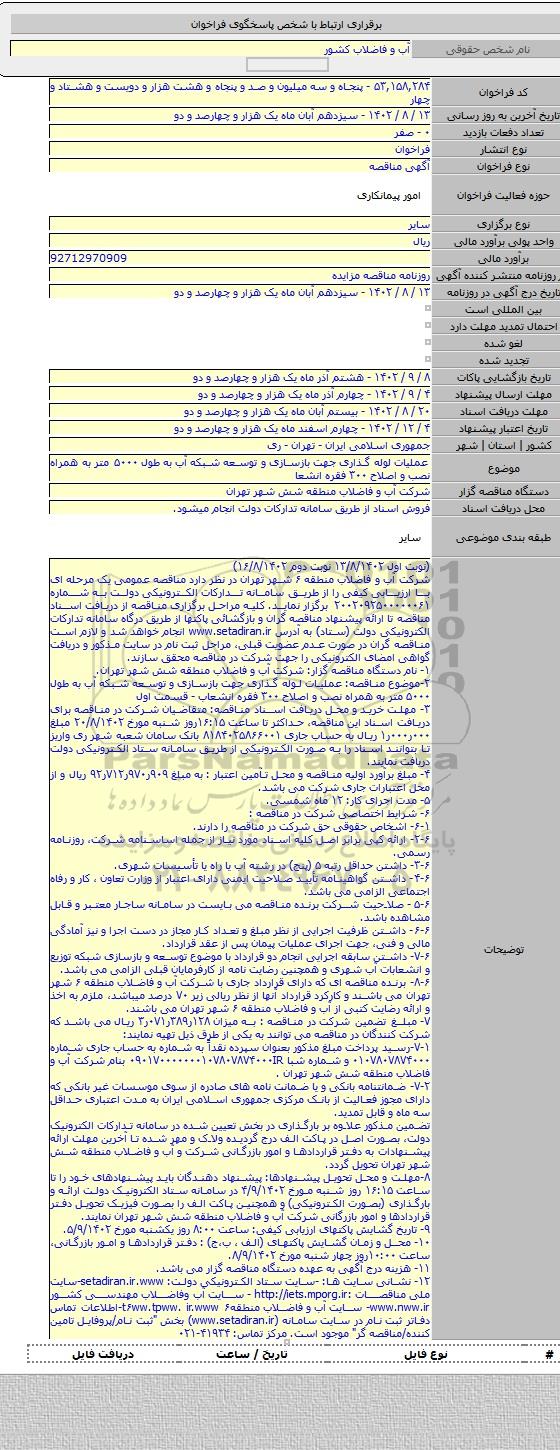 برقراری ارتباط با شخص پاسخگوی فراخوان
نام شخص حقوقی آب و فاضلاب کشور
کد فراخوان ۵۳,۱۵۸,۲۸۴ - پنجاه و سه میلیون و صد و پنجاه و هشت هزار و دویست و هشتاد و
چهار
تاریخ آخرین به روز رسانی ۱۳ / ۸ / ۱۴۰۲ - سیزدهم آبان ماه یک هزار و چهارصد و دو
تعداد دفعات بازدید ۰ - صفر
نوع انتشار فراخوان
نوع فراخوان آگهی مناقصه
حوزه فعالیت فراخوان امور پیمانکاری
نوع برگزاری سایر
واحد پولی برآورد مالی ریال
برآورد مالی 92712970909
روزنامه منتشر کننده آگهی روزنامه مناقصه مزایده
تاریخ درج آگهی در روزنامه ۱۳ / ۸ / ۱۴۰۲ - سیزدهم آبان ماه یک هزار و چهارصد و دو
بین المللی است
احتمال تمدید مهلت دارد
لغو شده
تجدید شده
تاریخ بازگشایی پاکات ۸ / ۹ / ۱۴۰۲ - هشتم آذر ماه یک هزار و چهارصد و دو
مهلت ارسال پیشنهاد ۴ / ۹ / ۱۴۰۲ - چهارم آذر ماه یک هزار و چهارصد و دو
مهلت دریافت اسناد ۲۰ / ۸ / ۱۴۰۲ - بیستم آبان ماه یک هزار و چهارصد و دو
تاریخ اعتبار پیشنهاد ۴ / ۱۲ / ۱۴۰۲ - چهارم اسفند ماه یک هزار و چهارصد و دو
کشور | استان | شهر جمهوری اسلامی ایران - تهران - ری
موضوع عملیات لوله گذاری جهت بازسازی و توسعه شبکه آب به طول ۵۰۰۰ متر به همراه
نصب و اصلاح ۳۰۰ فقره انشعا
دستگاه مناقصه گزار شرکت آب و فاضلاب منطقه شش شهر تهران
محل دریافت اسناد فروش اسناد از طریق سامانه تدارکات دولت انجام میشود.
طبقه بندی موضوعی سایر
توضیحات
(نوبت اول ۱۳/۸/۱۴۰۲ نوبت دوم ۱۶/۸/۱۴۰۲)
شرکت آب و فاضلاب منطقه ۶ شهر تهران در نظر دارد مناقصه عمومی یک مرحله ای
با ارزیابی کیفی را از طریق سامانه تدارکات الکترونیکی دولت به شماره
۲۰۰۲۰۹۲۵۰۰۰۰۰۰۶۱ برگزار نماید. کلیه مراحل برگزاری مناقصه از دریافت اسناد
مناقصه تا ارائه پیشنهاد مناقصه گران و بازگشائی پاکتها از طریق درگاه سامانه تدارکات
الکترونیکی دولت (ستاد) به آدرس www.setadiran.ir انجام خواهد شد و لازم است
مناقصه گران در صورت عدم عضویت قبلی، مراحل ثبت نام در سایت مذکور و دریافت
گواهی امضای الکترونیکی را جهت شرکت در مناقصه محقق سازند.
۱- نام دستگاه مناقصه گزار: شرکت آب و فاضلاب منطقه شش شهر تهران.
۲-موضوع مناقصه: عملیات لوله گذاری جهت بازسازی و توسعه شبکه آب به طول
۵۰۰۰ متر به همراه نصب و اصلاح ۳۰۰ فقره انشعاب - قسمت اول
۳- مهلت خرید و محل دریافت اسناد مناقصه: متقاضیان شرکت در مناقصه برای
دریافت اسناد این مناقصه، حداکثر تا ساعت ۱۶:۱۵روز شنبه مورخ ۲۰/۸/۱۴۰۲ مبلغ
۱٫۰۰۰٫۰۰۰ ریال به حساب جاری ۸۱۸۴۰۲۵۸۶۶۰۰۱ بانک سامان شعبه شهر ری واریز
تا بتوانند اسناد را به صورت الکترونیکی از طریق سامانه ستاد الکترونیکی دولت
دریافت نمایند.
۴- مبلغ برآورد اولیه مناقصه و محل تأمین اعتبار : به مبلغ ۹۲٫۷۱۲٫۹۷۰٫۹۰۹ ریال و از
محل اعتبارات جاری شرکت می باشد.
۵- مدت اجرای کار: ۱۲ ماه شمسی.
۶- شرایط اختصاصی شرکت در مناقصه :
۶-۱- اشخاص حقوقی حق شرکت در مناقصه را دارند.
۶-۲- ارائه کپی برابر اصل کلیه اسناد مورد نیاز از جمله اساسنامه شرکت، روزنامه
رسمی.
۶-۳- داشتن حداقل رتبه ۵ (پنج) در رشته آب یا راه با تأسیسات شهری.
۶-۴- داشتن گواهینامه تأیید صلاحیت ایمنی دارای اعتبار از وزارت تعاون ، کار و رفاه
اجتماعی الزامی می باشد.
۶-۵ - صلاحیت شرکت برنده مناقصه می بایست در سامانه ساجار معتبر و قابل
مشاهده باشد.
۶-۶- داشتن ظرفیت اجرایی از نظر مبلغ و تعداد کار مجاز در دست اجرا و نیز آمادگی
مالی و فنی، جهت اجرای عملیات پیمان پس از عقد قرارداد.
۶-۷- داشتن سابقه اجرایی انجام دو قرارداد با موضوع توسعه و بازسازی شبکه توزیع
و انشعابات آب شهری و همچنین رضایت نامه از کارفرمایان قبلی الزامی می باشد.
۶-۸- برنده مناقصه ای که دارای قرارداد جاری با شرکت آب و فاضلاب منطقه ۶ شهر
تهران می باشند و کارکرد قرارداد آنها از نظر ریالی زیر ۷۰ درصد میباشد، ملزم به اخذ
و ارائه رضایت کتبی از آب و فاضلاب منطقه ۶ شهر تهران می باشند.
۷- مبلغ تضمین شرکت در مناقصه : به میزان ۳٫۰۷۱٫۳۸۹٫۱۲۸ ریال می باشد که
شرکت کنندگان در مناقصه می توانند به یکی از طرق ذیل تهیه نمایند:
۷-۱-رسید پرداخت مبلغ مذکور بعنوان سپرده نقداً به شماره به حساب جاری شماره
۰۱۰۷۸۰۷۸۷۴۰۰۰ و شماره شبا IR۰۹۰۱۷۰۰۰۰۰۰۰۱۰۷۸۰۷۸۷۴۰۰۰ بنام شرکت آب و
فاضلاب منطقه شش شهر تهران .
۷-۲- ضمانتنامه بانکی و یا ضمانت نامه های صادره از سوی موسسات غیر بانکی که
دارای مجوز فعالیت از بانک مرکزی جمهوری اسلامی ایران به مدت اعتباری حداقل
سه ماه و قابل تمدید.
تضمین مذکور علاوه بر بارگذاری در بخش تعیین شده در سامانه تدارکات الکترونیک
دولت، بصورت اصل در پاکت الف درج گردیده ولاک و مهر شده تا آخرین مهلت ارائه
پیشنهادات به دفتر قراردادها و امور بازرگانی شرکت و آب و فاضلاب منطقه شش
شهر تهران تحویل گردد.
۸-مهلت و محل تحویل پیشنهادها: پیشنهاد دهندگان باید پیشنهادهای خود را تا
ساعت ۱۶:۱۵ روز شنبه مورخ ۴/۹/۱۴۰۲ در سامانه ستاد الکترونیک دولت ارائه و
بارگذاری (بصورت الکترونیکی) و همچنین پاکت الف را بصورت فیزیک تحویل دفتر
قراردادها و امور بازرگانی شرکت آب و فاضلاب منطقه شش شهر تهران نمایند.
۹- تاریخ گشایش پاکتهای ارزیابی کیفی: ساعت ۸:۰۰ روز یکشنبه مورخ ۵/۹/۱۴۰۲.
۱۰- محل و زمان گشایش پاکتهای (الف ، ب،ج) : دفتر قراردادها و امور بازرگانی،
ساعت ۱۰:۰۰روز چهار شنبه مورخ ۸/۹/۱۴۰۲.
۱۱- هزینه درج آگهی به عهده دستگاه مناقصه گزار می باشد.
۱۲- نشانی سایت ها: -سایت ستاد الکترونیکی دولت: setadiran.ir.www-سایت
ملی مناقصات : http://iets.mporg.ir - سایت آب وفاضلاب مهندسی کشور
www.nww.ir- سایت آب و فاضلاب منطقه۶ t۶ww.tpww. ir.www-اطلاعات تماس
دفاتر ثبت نام در سایت سامانه (www.setadiran.ir) بخش "ثبت نام/پروفایل تامین
کننده/مناقصه گر" موجود است. مرکز تماس: ۴۱۹۳۴-۰۲۱
# نوع فایل تاریخ / ساعت دریافت فایل